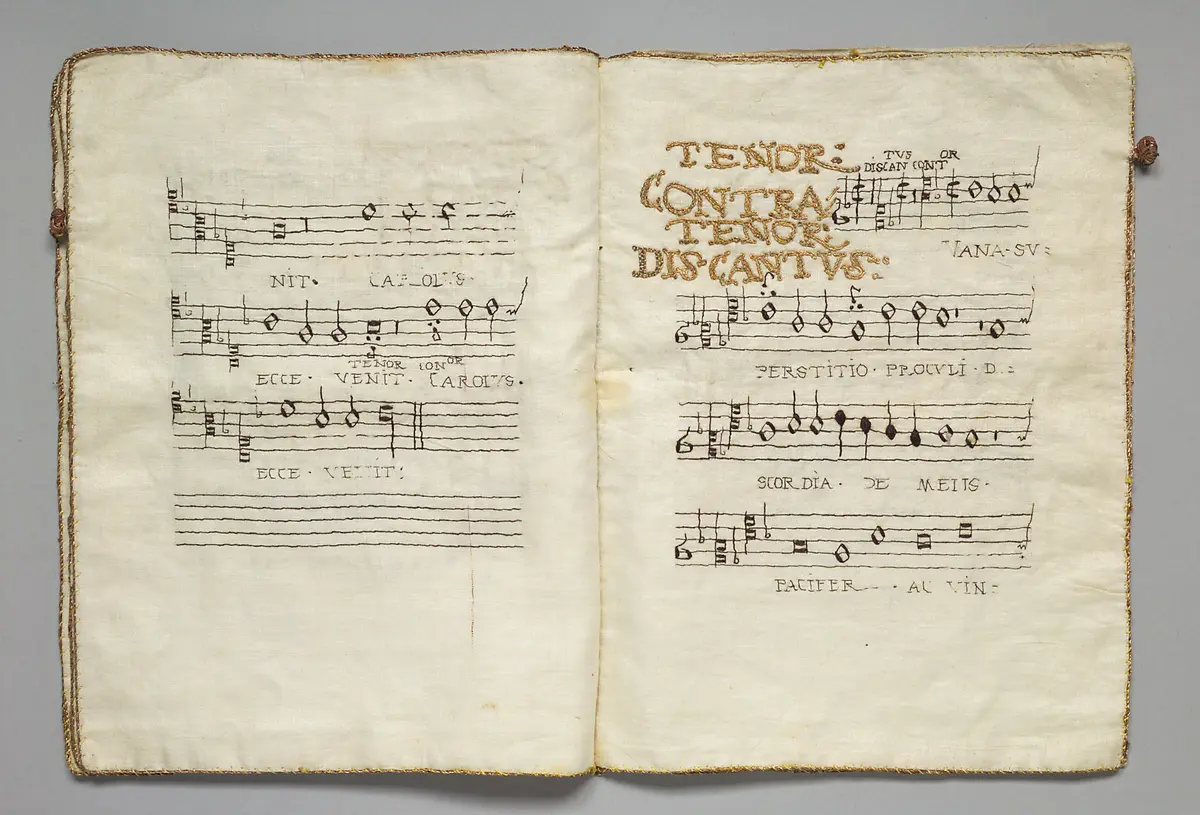 NIT· CAROLVS·
TENOR CONOR
ECCE· VENIT· CAROLVS·
ECCE· VENIT:
TENOR:
CONTRA/
TENOR:
DIS·CANTVS:
TVS OR
DISCAN CONT
VANA·SV:
PERSTITIO· PROCVLI· D.:
SCORDIA· DE MEIIS·
PACIFER · AC VIN: